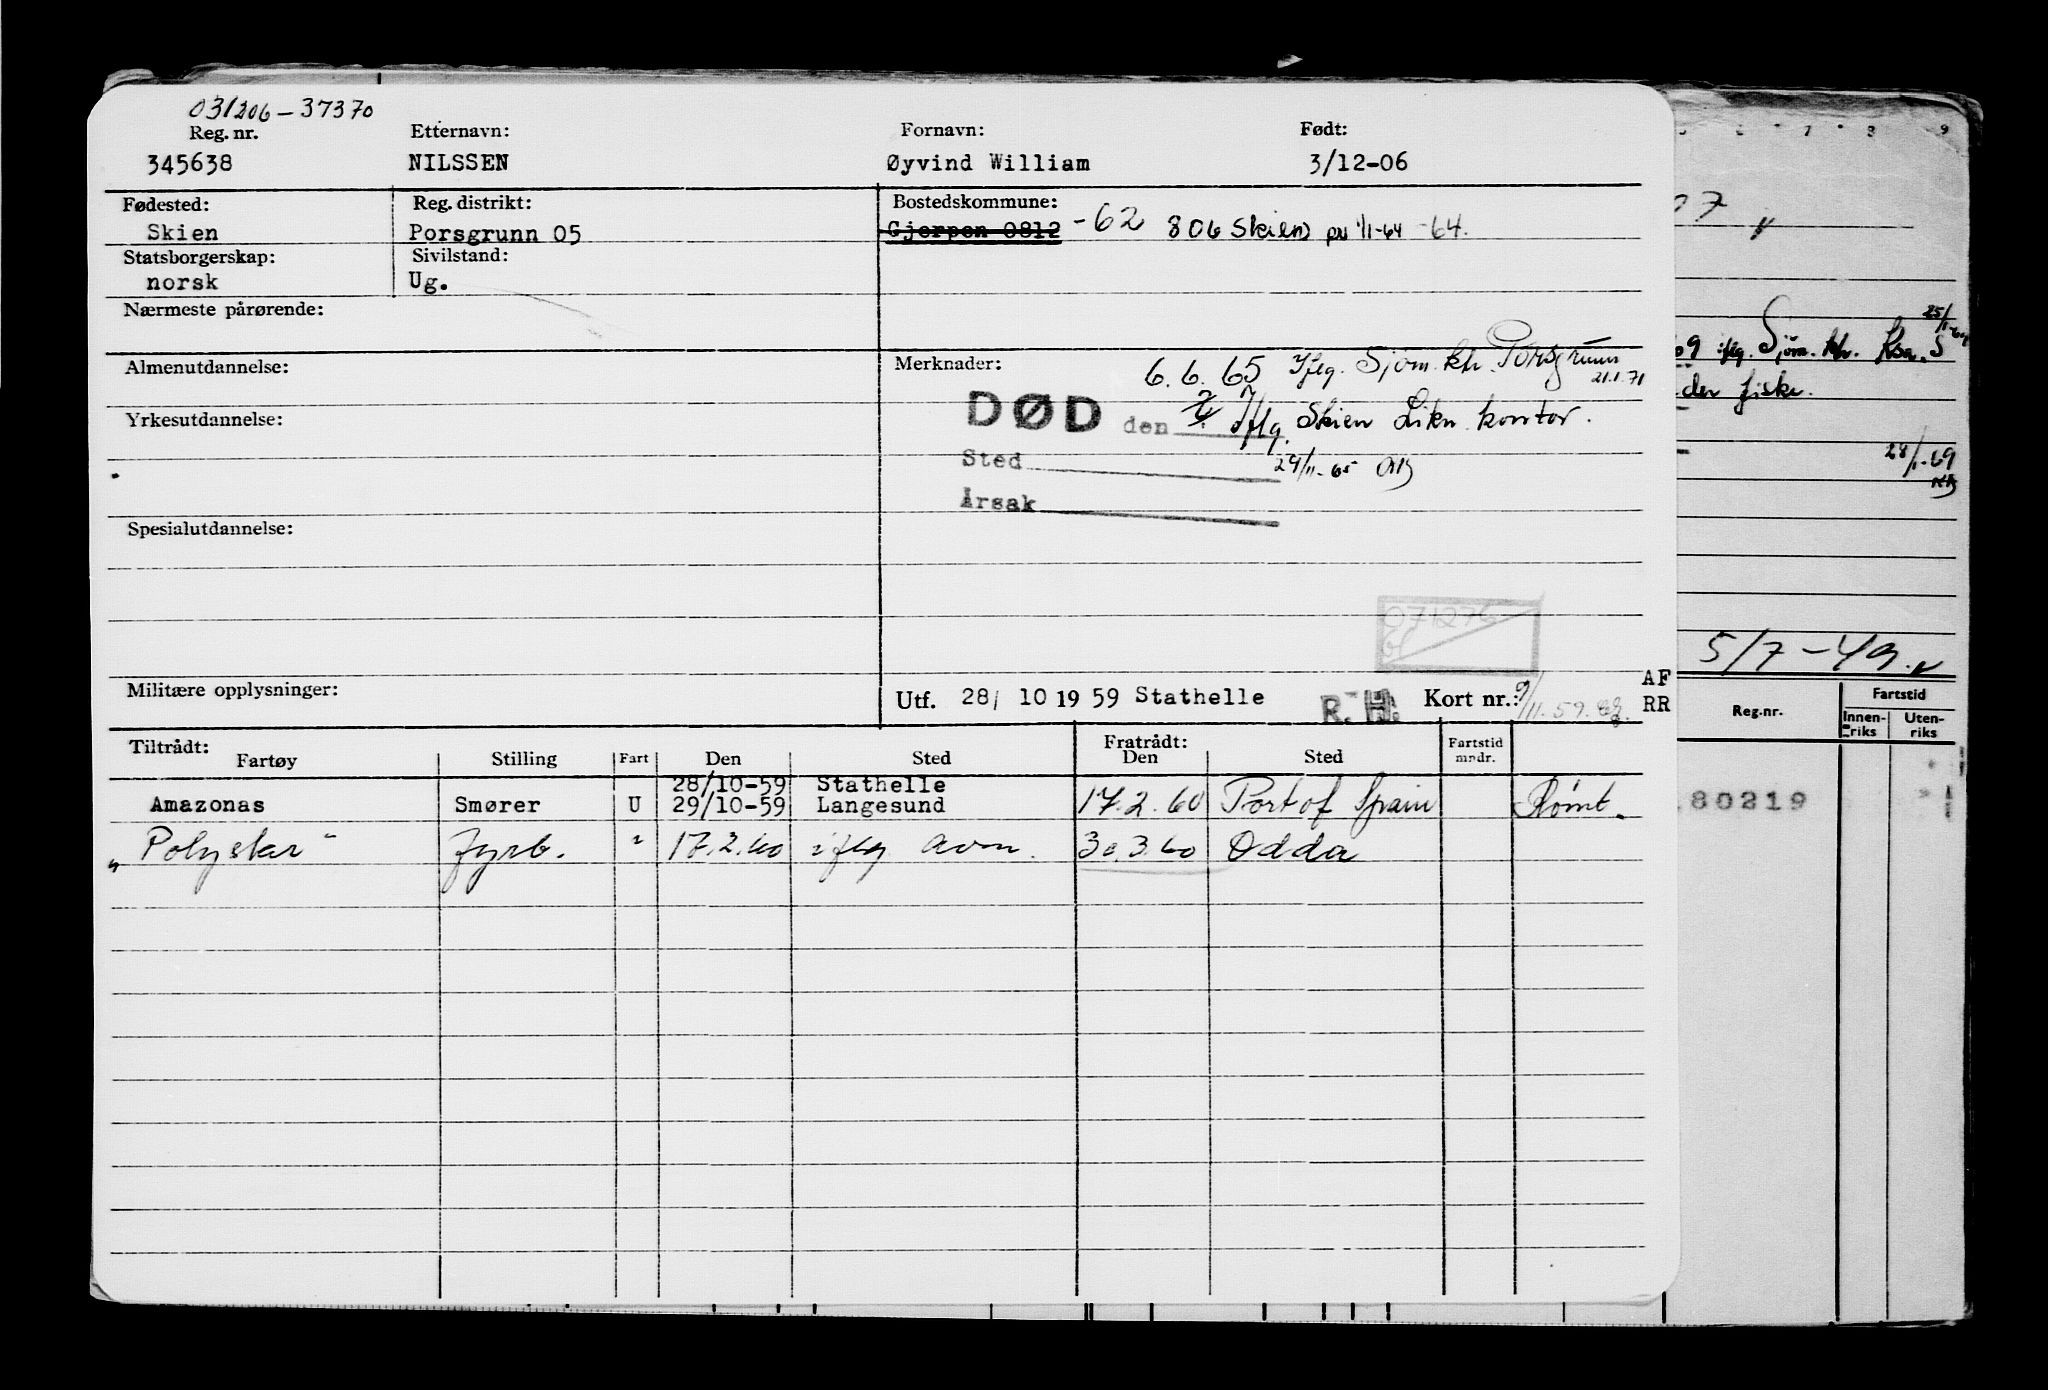 031206-37370
Reg. nr. Etternavn: Fornavn: Født:
345638 NILSSEN Øyvind William 3/12-06
Fødested: Reg. distrikt: Bostedskommune:
Skien Porsgrunn 05 Gjerpen 0812 -62 806 Skien pr 1/1-64 -64.
Statsborgerskap: Sivilstand:
norsk Ug.
Nærmeste pårørende:
Almenutdannelse: Merknader: 6.6.65 Iflg. Sjøm.ktr. Porsgrunn
21.1.71
Yrkesutdannelse: DØD den Iflg. Skien Likn. kontor.
Sted 24/11-65
Årsak
Spesialutdannelse:
071276
Militære opplysninger: Utf. 28/ 10 19 59 Stathelle R. H. Kort nr.: 9/11.59.
AF
RR
Tiltrådt: Fratrådt:
Fartøy Stilling Fart Den Sted Den Sted Fartstid mndr.
28/10-59 Stathelle
Amazonas Smører U 29/10-59 Langesund 17.2.60 Port of Spain Rømt.
"Polystar" fyrb. " 17.2.60 iflg avm. 30.3.60 Odda
7 8 9
07 "
25/1-69
69 iflg. Sjøm. ktr. Krsa. S
der fiske.
28/1-69
5/7-49.
Reg.nr. Fartstid
Innenriks Utenriks
80219